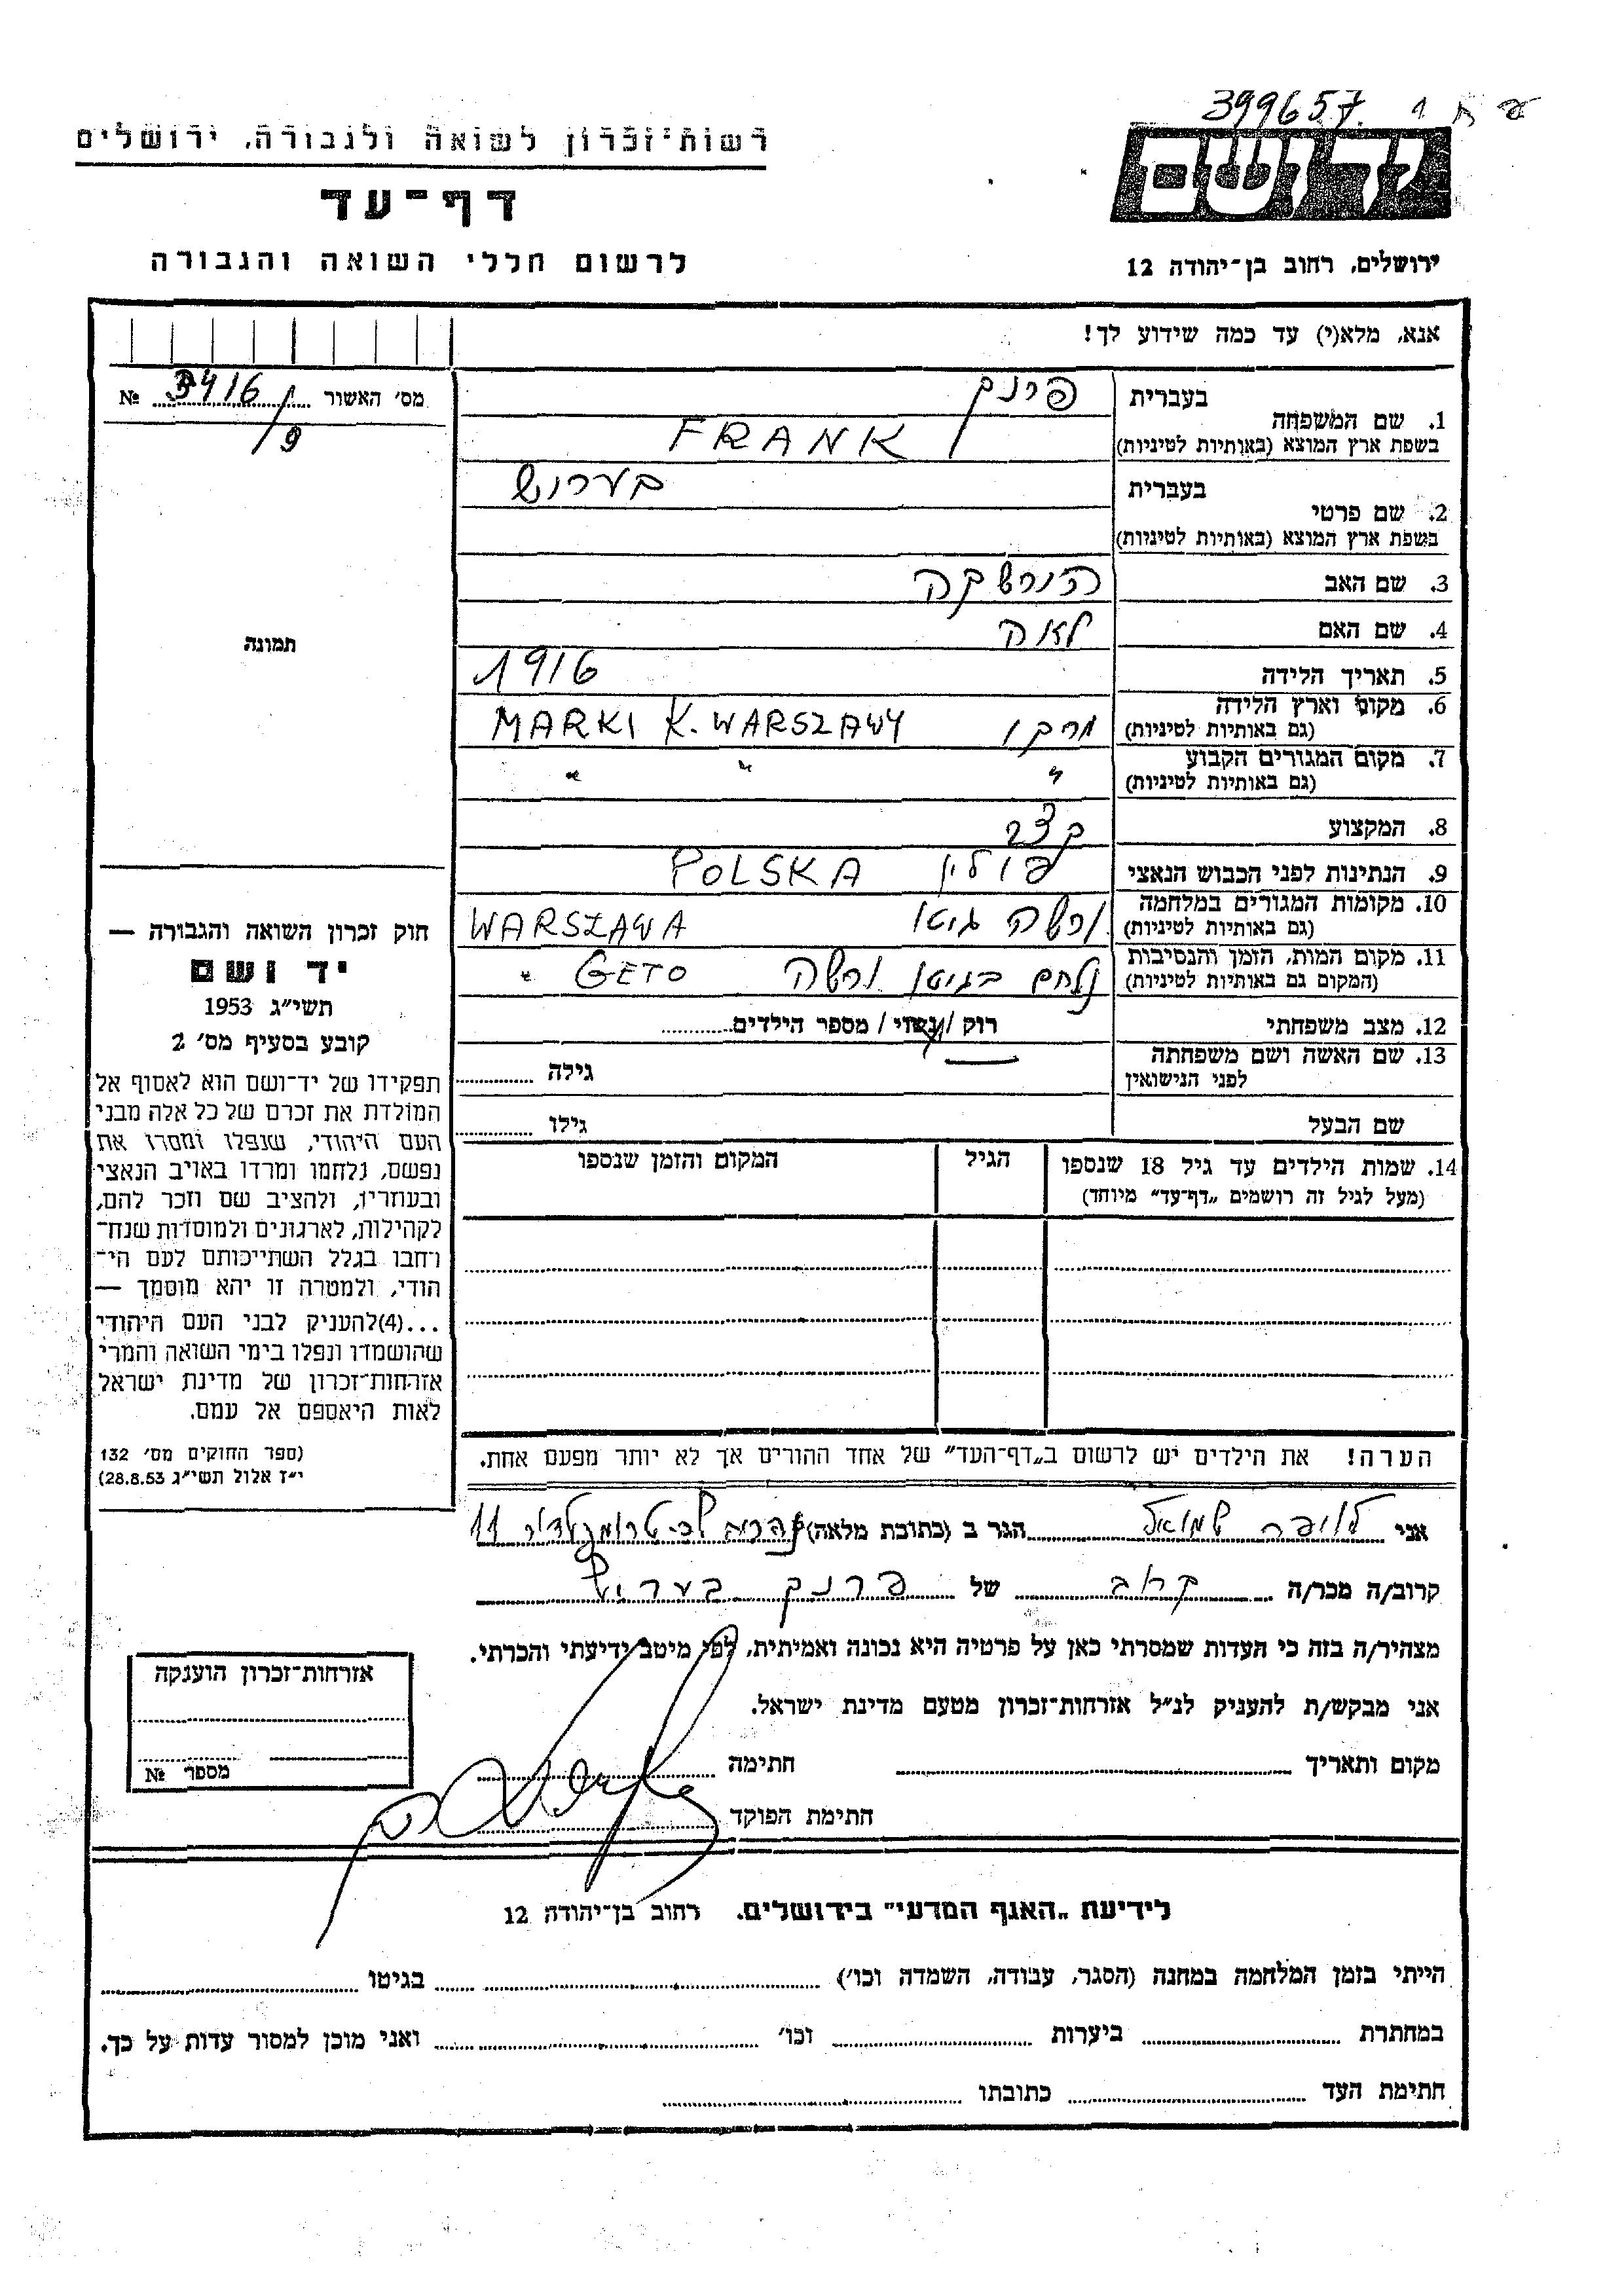 399657
ידושם
רשות־זכרון לשואה ולגבורה, ירושלים
דף־עד
לרשום חללי השואה והגבורה
ירושלים, רחוב בן־יהודה 12
אנא, מלא(י) עד כמה שידוע לך!
מס׳ האשור № 3416/9
1. שם המשפחה
בעברית פרנק
בשפת ארץ המוצא (באותיות לטיניות) FRANK
2. שם פרטי
בעברית בערוש
בשפת ארץ המוצא (באותיות לטיניות)
3. שם האב
4. שם האם לאה
5. תאריך הלידה 1916
6. מקום וארץ הלידה
(גם באותיות לטיניות) מרקי MARKI K. WARSZAWY
7. מקום המגורים הקבוע
(גם באותיות לטיניות) " " "
8. המקצוע קצב
9. הנתינות לפני הכבוש הנאצי פולין POLSKA
10. מקומות המגורים במלחמה
(גם באותיות לטיניות) ורשה גיטו WARSZAWA
11. מקום המות, הזמן והנסיבות
(המקום גם באותיות לטיניות) נלחם בגיטו ורשה GETO "
12. מצב משפחתי רוק / נשוי / מספר הילדים
13. שם האשה ושם משפחתה
לפני הנישואין גילה
שם הבעל גילו
14. שמות הילדים עד גיל 18 שנספו הגיל המקום והזמן שנספו
(מעל לגיל זה רושמים „דף־עד” מיוחד)
הערה! את הילדים יש לרשום ב„דף־העד” של אחד ההורים אך לא יותר מפעם אחת.
תמונה
חוק זכרון השואה והגבורה —
יד ושם
תשי״ג 1953
קובע בסעיף מס׳ 2
תפקידו של יד־ושם הוא לאסוף אל
המולדת את זכרם של כל אלה מבני
העם היהודי, שנפלו ומסרו את
נפשם, נלחמו ומרדו באויב הנאצי
ובעוזריו, ולהציב שם וזכר להם,
לקהילות, לארגונים ולמוסדות שנח־
רבו בגלל השתייכותם לעם הי־
הודי, ולמטרה זו יהא מוסמך —
...(4)להעניק לבני העם היהודי
שהושמדו ונפלו בימי השואה והמרי
אזרחות־זכרון של מדינת ישראל
לאות היאספם אל עמם.
(ספר החוקים מס׳ 132
י״ז אלול תשי״ג 28.8.53)
אני שמואל הגר ב (כתובת מלאה) טרומפלדור 11
קרוב/ה מכר/ה קרוב של פרנק בערוש
מצהיר/ה בזה כי העדות שמסרתי כאן על פרטיה היא נכונה ואמיתית, לפי מיטב ידיעתי והכרתי.
אני מבקש/ת להעניק לנ״ל אזרחות־זכרון מטעם מדינת ישראל.
מקום ותאריך חתימה
חתימת הפוקד
אזרחות־זכרון הוענקה
מספר №
לידיעת „האגף המדעי” בירושלים, רחוב בן־יהודה 12
הייתי בזמן המלחמה במחנה (הסגר, עבודה, השמדה וכו׳) בגיטו
במחתרת ביערות וכו׳ ואני מוכן למסור עדות על כך.
חתימת העד כתובתו